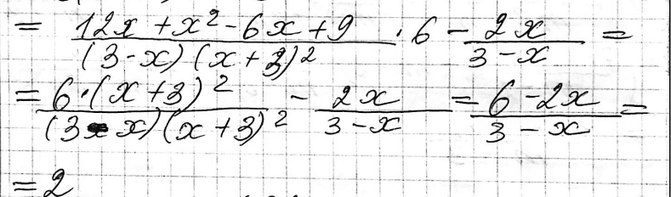 = (12x + x² - 6x + 9)/((3-x)(x+3)²) · 6 - 2x/(3-x) =
= 6·(x+3)²/((3-x)(x+3)²) - 2x/(3-x) = (6-2x)/(3-x) =
= 2